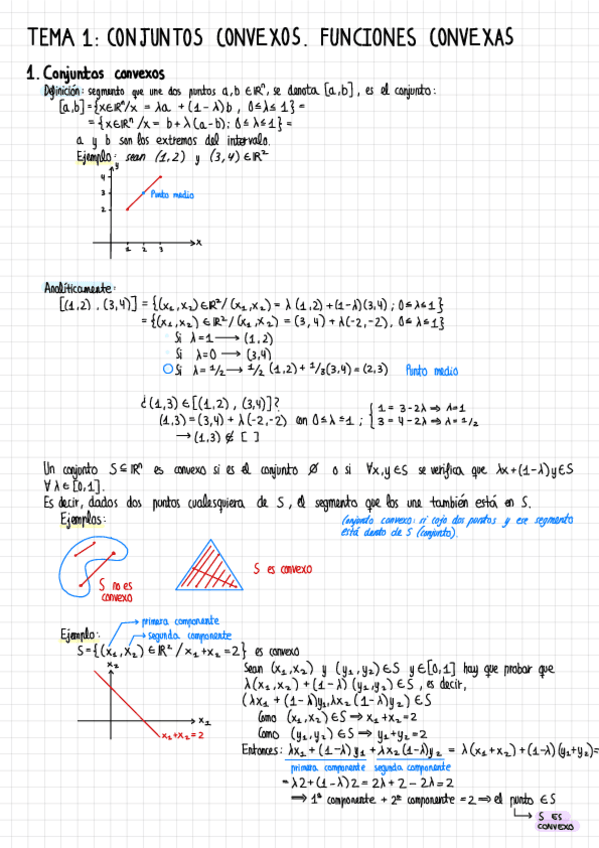 TEMA 1: CONJUNTOS CONVEXOS. FUNCIONES CONVEXAS
1. Conjuntos convexos
Definición: segmento que une dos puntos a,b ∈ ℝⁿ, se denota [a,b], es el conjunto:
[a,b] = {x∈ℝⁿ/x = λa + (1-λ)b , 0≤λ≤1} =
= {x∈ℝⁿ /x = b+λ(a-b); 0≤λ≤1} =
a y b son los extremos del intervalo.
Ejemplo: sean (1,2) y (3,4) ∈ℝ²
y
4
3
2
Punto medio
1 2 3
x
Analíticamente:
[(1,2) , (3,4)] = {(x₁,x₂) ∈ℝ²/(x₁,x₂) = λ(1,2)+(1-λ)(3,4) ; 0≤λ≤1}
= {(x₁,x₂) ∈ℝ²/(x₁,x₂) = (3,4) + λ(-2,-2), 0≤λ≤1}
Si λ=1 → (1,2)
Si λ=0 → (3,4)
Si λ=1/2 → 1/2 (1,2) + 1/3(3,4) = (2,3) Punto medio
¿(1,3) ∈ [(1,2) , (3,4)]?
(1,3) = (3,4) + λ(-2,-2) con 0≤λ≤1 ; { 1 = 3-2λ ⇒ λ=1
3 = 4-2λ ⇒ λ=1/2
→ (1,3) ∉ [ ]
Un conjunto S⊆ℝⁿ es convexo si es el conjunto ∅ o si ∀x,y∈S se verifica que λx+(1-λ)y∈S
∀λ∈[0,1].
Es decir, dados dos puntos cualesquiera de S, el segmento que los une también está en S.
Ejemplos:
Conjunto convexo: si cojo dos puntos y ese segmento
está dento de S (conjunto).
S no es
convexo
S es convexo
primera componente
Ejemplo:
segunda componente
S={(x₁,x₂) ∈ℝ²/x₁+x₂=2} es convexo
x₂
x₁
x₁+x₂=2
Sean (x₁,x₂) y (y₁,y₂)∈S y∈[0,1] hay que probar que
λ(x₁,x₂) + (1-λ)(y₁,y₂) ∈S, es decir,
(λx₁ + (1-λ)y₁,λx₂(1-λ)y₂) ∈S
Como (x₁,x₂)∈S ⇒ x₁+x₂=2
Como (y₁,y₂) ∈S ⇒ y₁+y₂=2
Entonces: λx₁ + (1-λ)y₁ + λx₂(1-λ)y₂ = λ(x₁+x₂) + (1-λ)(y₁+y₂)=
primera componente segunda componente
= λ2+(1-λ)2 = 2λ+2-2λ = 2
⇒ 1ª componente + 2ª componente = 2 ⇒ el punto ∈S
S ES
CONVEXO